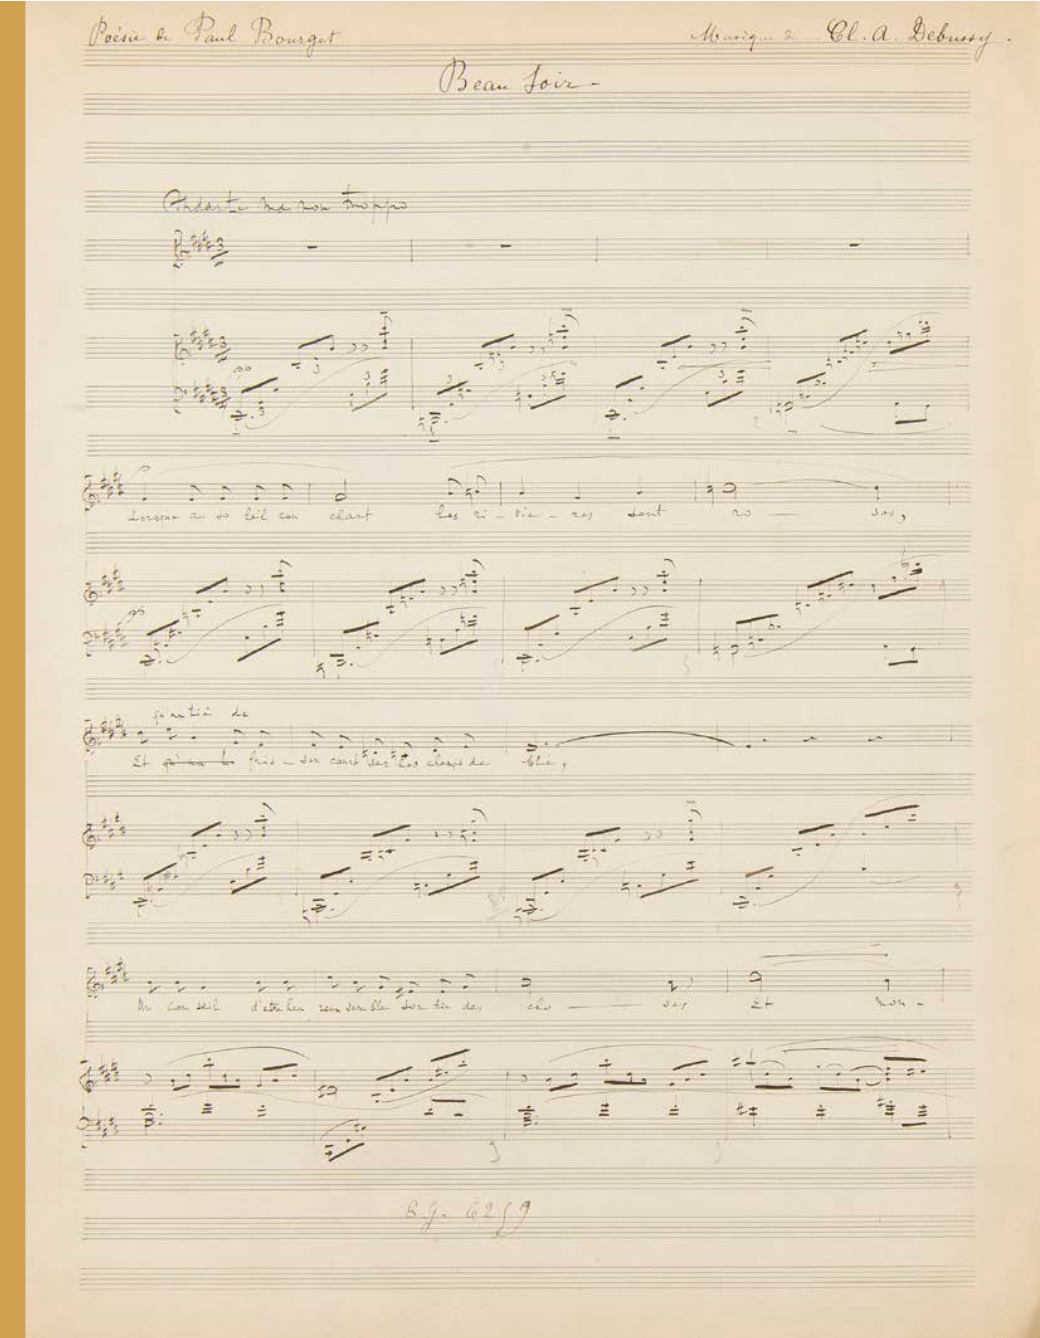 Poésie de Paul Bourget
Musique de Cl. A. Debussy.
Beau Soir
Andante ma non troppo
3
3
3
pp
3
3
3
Lorsque au so leil cou chant les ri - viè - res sont ro — ses,
pp
qu'un tiè de
Et fris - son court sur les champs de blé,
Un con seil d'etre heu reux sem ble sor tir des cho — ses Et mon -
B.G. 6259